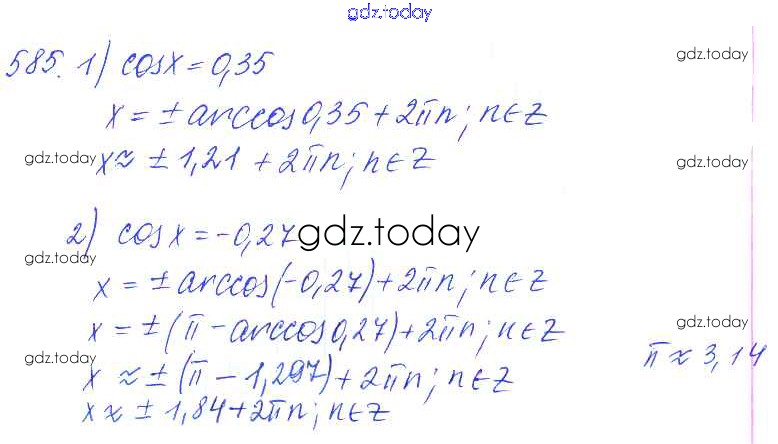 gdz.today
585. 1) cosx = 0,35
gdz.today
x = ± arccos0,35 + 2πn; n∈Z
gdz.today
x ≈ ± 1,21 + 2πn; n∈Z
gdz.today
2) cosx = -0,27
gdz.today
gdz.today
x = ± arccos(-0,27) + 2πn; n∈Z
x = ± (π - arccos0,27) + 2πn; n∈Z
gdz.today
π ≈ 3,14
gdz.today
x ≈ ± (π - 1,297) + 2πn; n∈Z
x ≈ ± 1,84 + 2πn; n∈Z